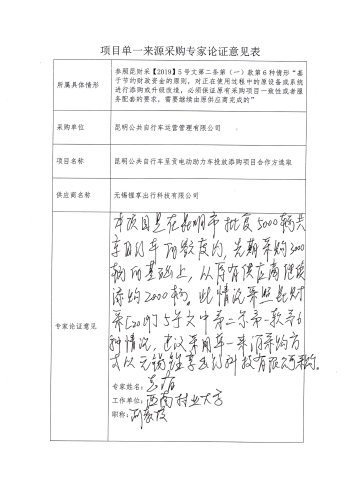 项目单一来源采购专家论证意见表
所属具体情形
参照昆财采【2019】5号文第二条第（一）款第6种情形“基
于节约财政资金的原则，对正在使用过程中的原设备或系统
进行添购或升级改造，必须保证原有采购项目一致性或者服
务配套的要求，需要继续由原供应商完成的”
采购单位
昆明公共自行车运营管理有限公司
项目名称
昆明公共自行车呈贡电动助力车投放添购项目合作方选取
供应商名称
无锡锂享出行科技有限公司
专家论证意见
本项目是在昆明市批复5000辆共
享自行车的额度内，先期采购3000
辆的基础上，从原有供应商继续
添购2000辆。此情况参照昆财
采[2019]5号文中第二条第一款第6
种情况，建议采用单一来源采购方
式从无锡锂享出行科技有限公司采购。
专家姓名：
工作单位：西南林业大学
职称：副教授